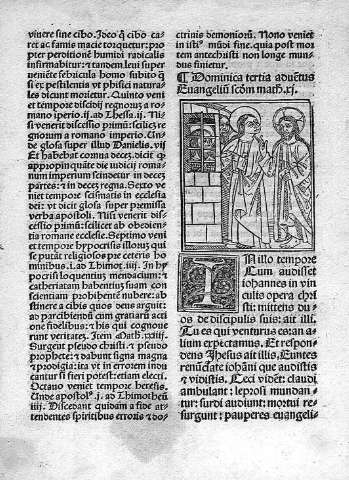 vivere sine cibo. Joco q̃ cibo ca
ret ac famis macie torquetur: pro
pter perditionē humidi radicalis
infirmabitur: ⁊ tandem leui super
veniēte febricula homo subito q̃
si ex pestilentis vt phisici natura
les dicunt morietur. Quinto veni
et tempore discidij regnorū a ro
mano iperio. ij. ad Thessa. ij. Ni
si venerit discessio primū: scilicet reg
norum a romano imperio. Un
de glosa super illud Danielis. vij
Et habebat cornua decem. dicit q̄
appropinquāte die iudicij roma
num imperium scindetur in decem
partes: ⁊ in decem regna. Sexto ve
niet tempore scismatis in ecclesia
dei: vt dicit glosa super premissa
verba apostoli. Nisi venerit dis
cessio primū: scilicet ab obedien
tia romane ecclesie. Septimo veni
et tempore hypocrisis illorum qui
se putāt religiosos pre ceteris ho
minibus. i. ad Thimot. iiij. In hy
pocrisi loquentium mendacium: ⁊
cautheriatam habentium suam con
scientiam prohibentiū nubere: ab
stinere a cibis quos deus creauit:
ad percipiendū cum gratiarū acti
one fidelibus: ⁊ his qui cognoue
runt veritatē. Item Math. xxiiij.
Surgent pseudo christi: ⁊ pseudo
prophete: ⁊ dabunt signa magna
⁊ prodigia: ita vt in errorem indu
cantur si fieri potest: etiam electi.
Octauo veniet tempore heresis.
Unde apostolus. j. ad Thimotheū
iiij. Discedent quidam a fide at
tendentes spiritibus erroris ⁊ do-
ctrinis demoniorū. Nono veniet
in istius mūdi fine. quia post mor
tem antechristi non longe mun
dus finietur.
¶ Dominica tertia aduētus
Euangeliū scōm math. xj.
IN illo tempore
Cum audisset
iohannes in vin
culis opera chri
sti: mittens du
os de discipulis suis: ait illi.
Tu es qui venturus es: an a
lium expectamus. Et respon
dens Jhesus ait illis. Euntes
renūciate iohāni que audistis
⁊ vidistis. Ceci vidēt: claudi
ambulant: leprosi mundan-
tur: surdi audiunt: mortui re-
surgunt: pauperes euangeli-